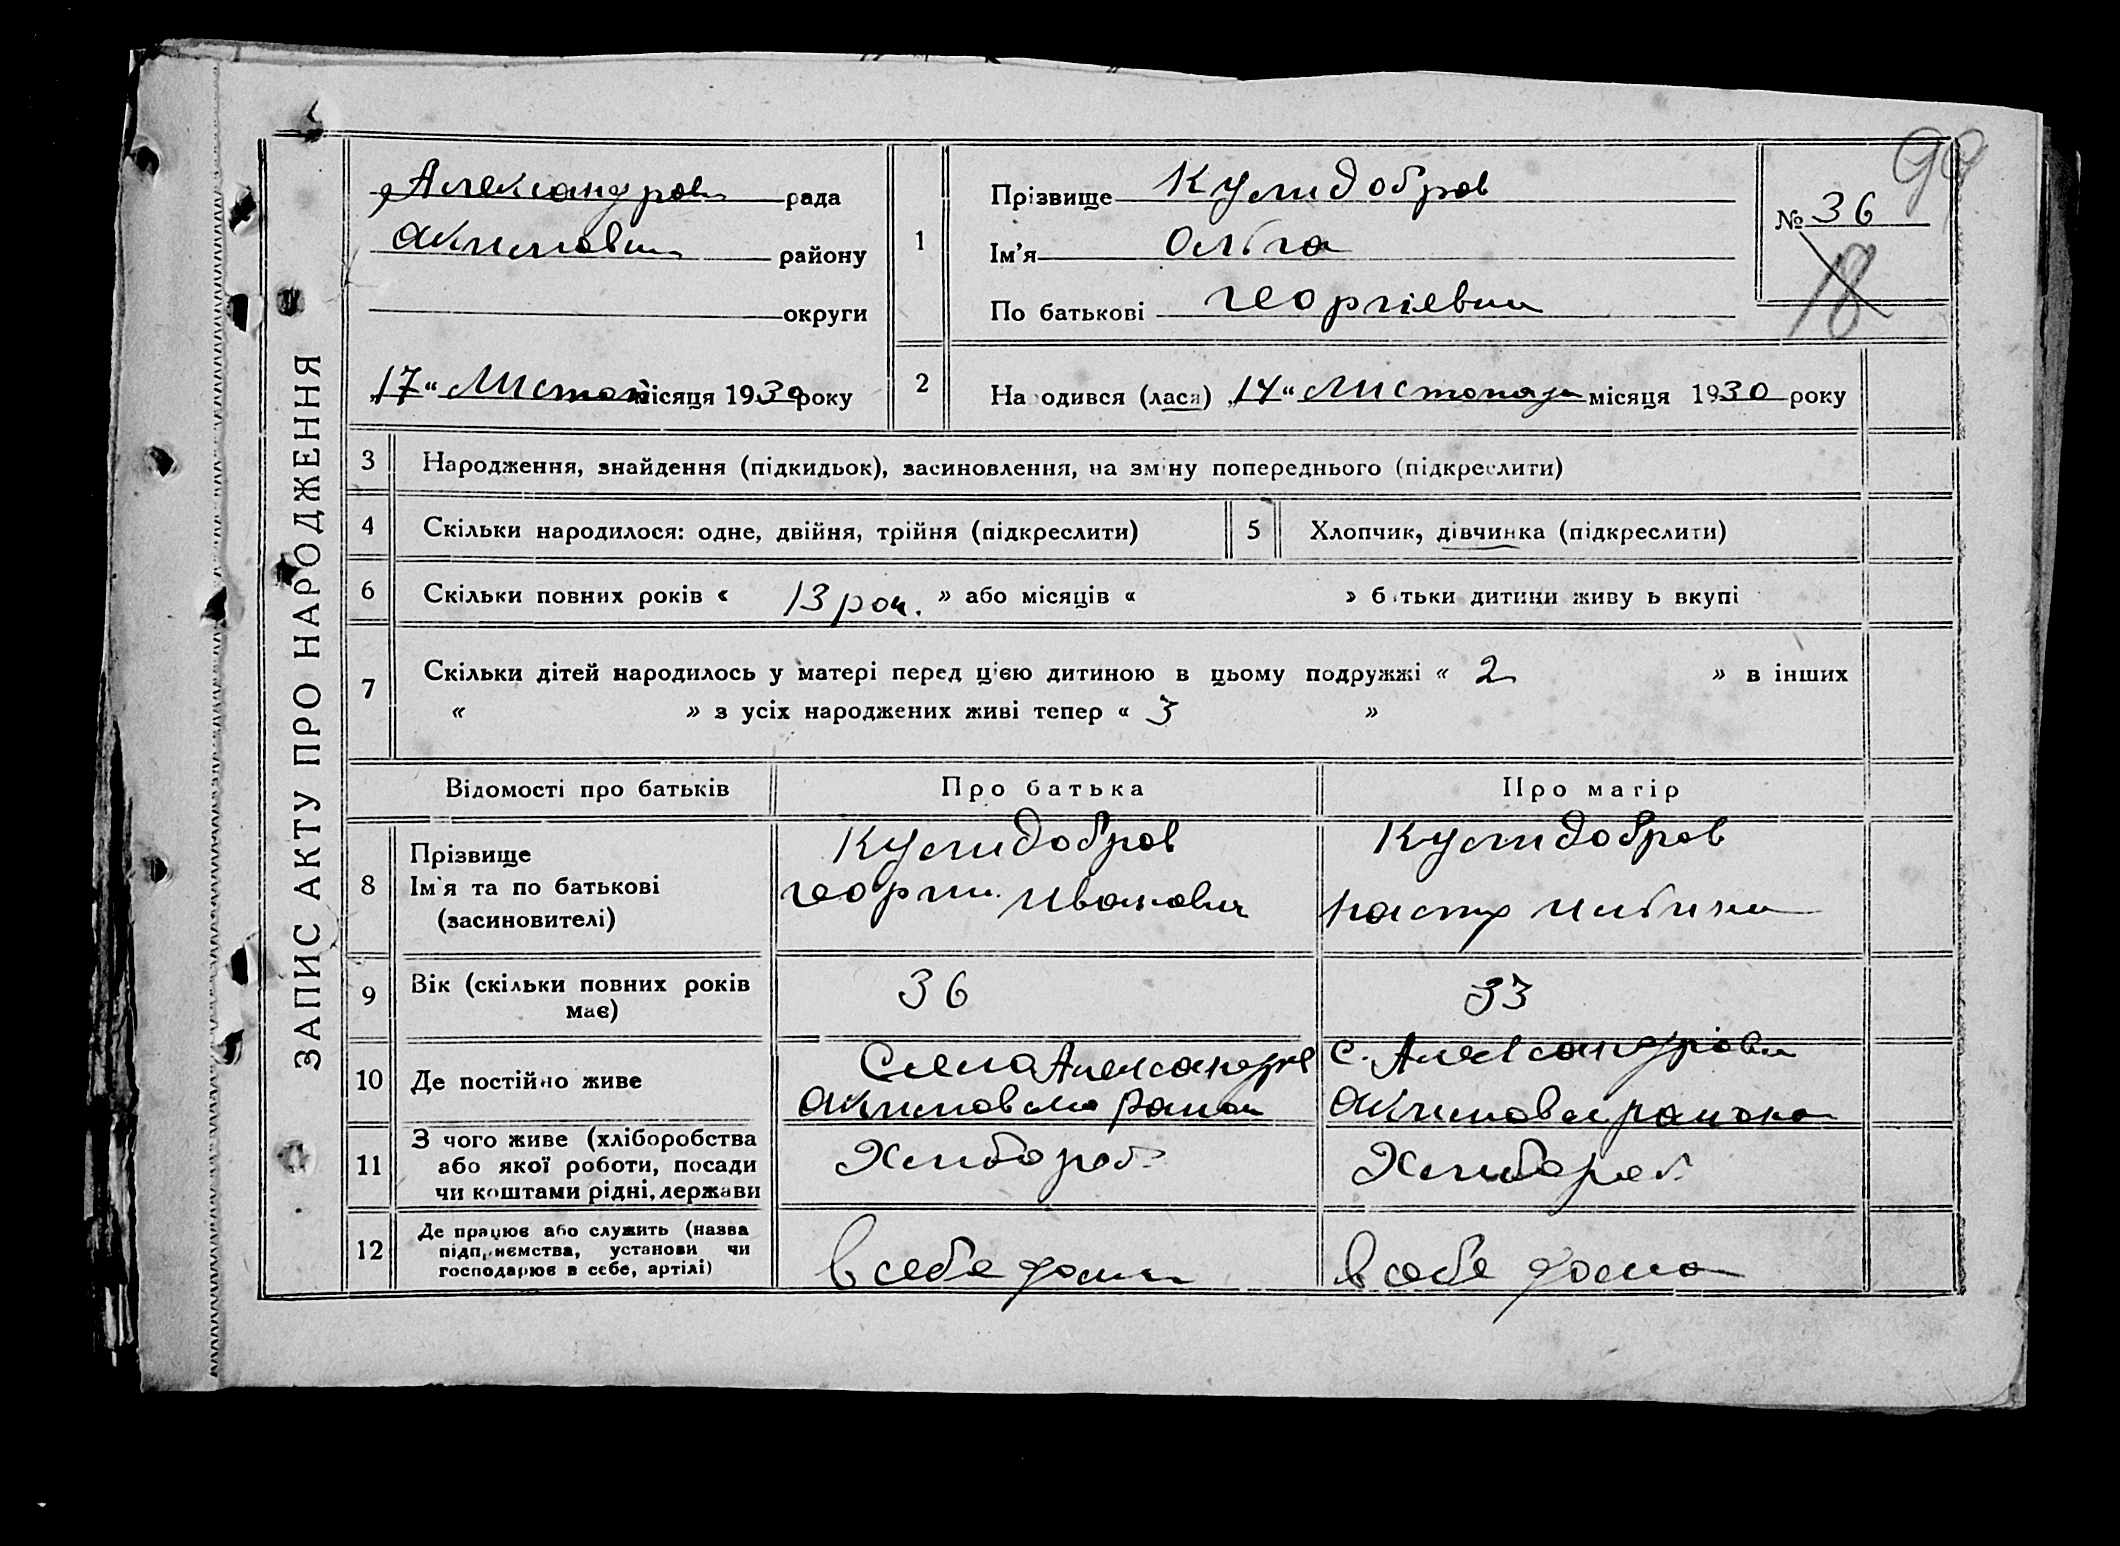 99
ЗАПИС АКТУ ПРО НАРОДЖЕННЯ
Александров рада
Акимовск району
округи
„17“ Листоп місяця 1930 року
1
Прізвище Кулидобров
Ім'я Ольга
По батькові Георгіевна
№ 36
18
2
Народився (лася) „14“ Листопада місяця 1930 року
3 Народження, знайдення (підкидьок), засиновлення, на зміну попереднього (підкреслити)
4 Скільки народилося: одне, двійня, трійня (підкреслити)
5 Хлопчик, дівчинка (підкреслити)
6 Скільки повних років « 13 рок. » або місяців « » батьки дитини живуть вкупі
7 Скільки дітей народилось у матері перед цією дитиною в цьому подружжі « 2 » в інших
« » з усіх народжених живі тепер « 3 »
Відомості про батьків Про батька Про матір
8 Прізвище
Ім'я та по батькові
(засиновителі)
Кулидобров
Георги Иванович
Кулидобров
9 Вік (скільки повних років
має)
36
33
10 Де постійно живе
Села Александров
Акимовско район
с. Александрівки
Акимовск района
11 З чого живе (хліборобства
або якої роботи, посади
чи коштами рідні, держави
Хлибороб
Хлибороб
12 Де працює або служить (назва
підприємства, установи чи
господарює в себе, артілі)
В себе дома
В себе дома